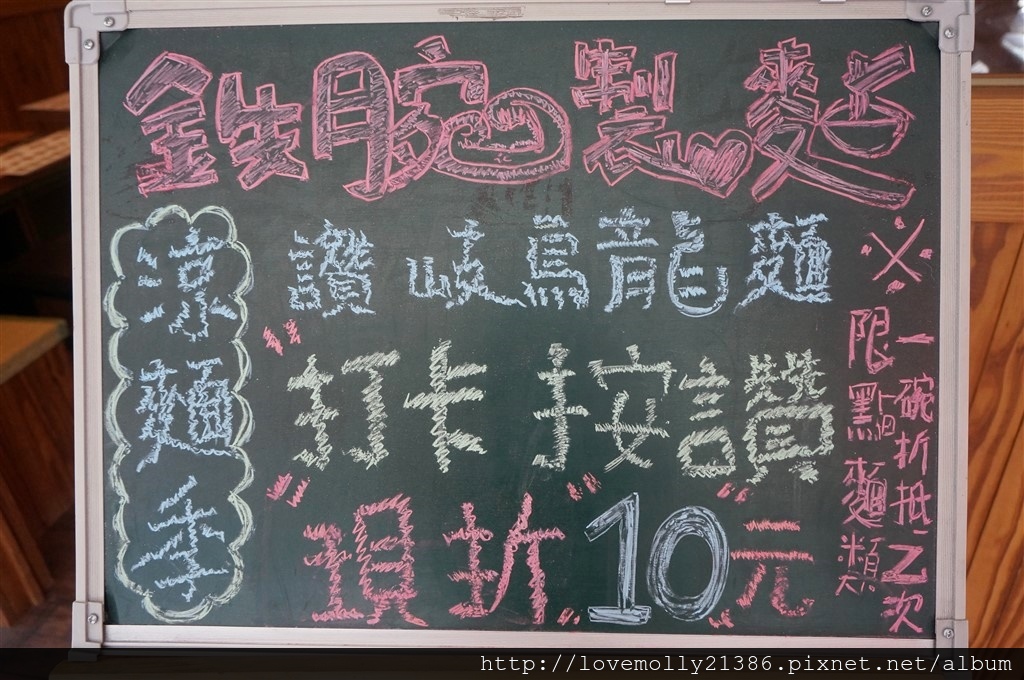 鉄腕製麵
涼麵季
讚岐烏龍麵
打卡按讚
"現折"10"元
※
一碗折抵乙次
限點麵類
http://lovemolly21386.pixnet.net/album